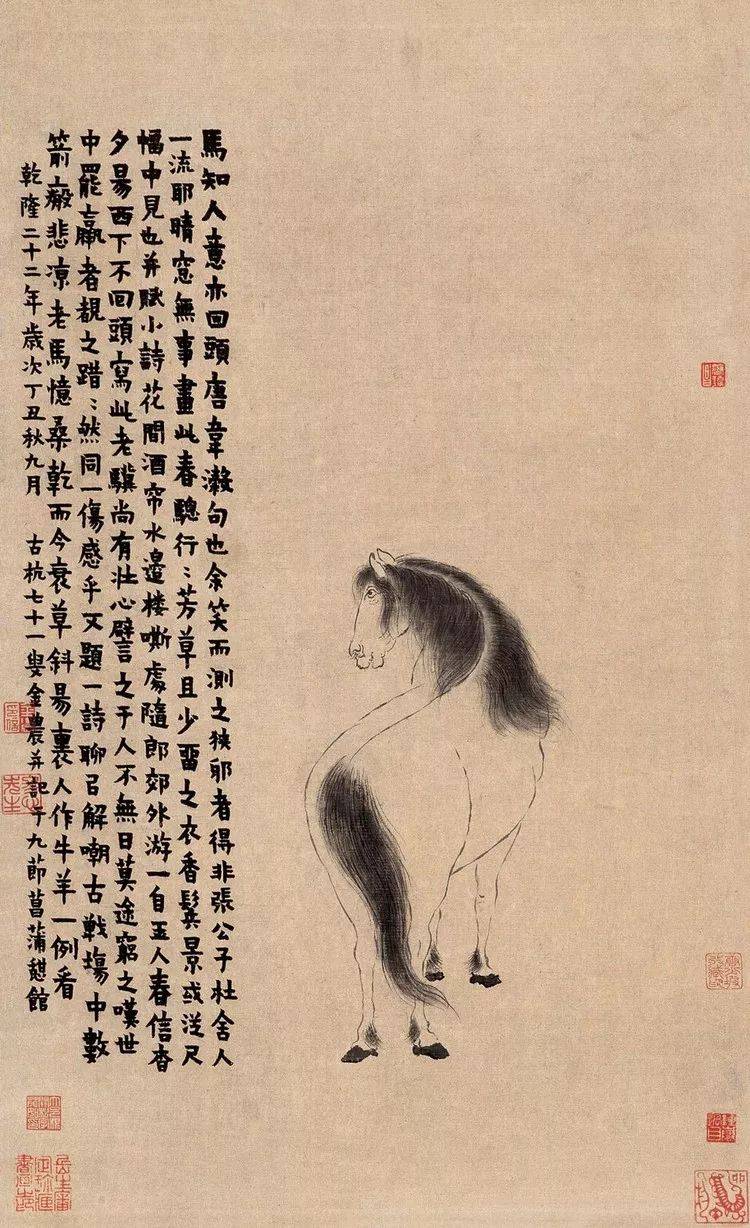 馬知人意亦回頭唐韋瀔句也余笑而測之狹邪者得非張公子杜舍人
一流耶晴窓無事畫此春驄行〻芳草且少留之衣香鬓景或從尺
幅中見也并賦小詩花間酒帘水邊楼嘶處隨郎郊外游一自玉人春信杳
夕昜西下不回頭寫此老驥尚有壮心譬之于人不無日莫途窮之嘆世
中罷羸者覩之踖〻然同一傷感乎又題一詩聊㠯解嘲古戰塲中數
箭瘢悲凉老馬憶桑乾而今衰草斜昜裏人作牛羊一例看
乾隆二十二年歳次丁丑秋九月 古杭七十一叟金農并記于九節菖蒲憩館